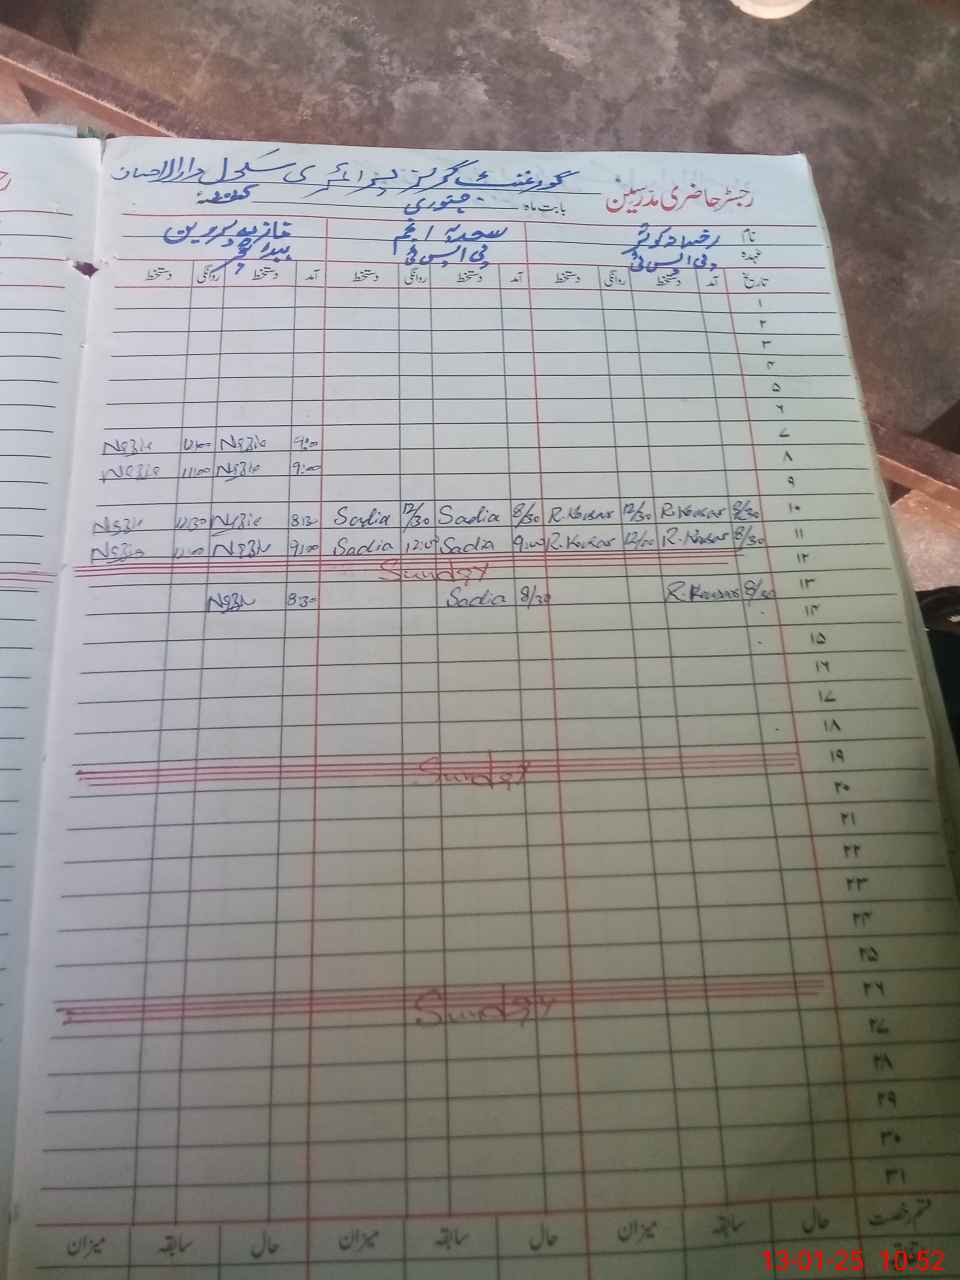 رجسٹر حاضری مدرسین گورنمنٹ گرلز پرائمری سکول دارالاحسان
بابت ماہ جنوری
نام رخسانہ کوثر سعدیہ انجم نازیہ پروین
عہدہ پی ایس ٹی پی ایس ٹی
تاریخ آمد دستخط روانگی دستخط آمد دستخط روانگی دستخط آمد دستخط روانگی دستخط
۱
۲
۳
۴
۵
۶
۷ 9:00 Nazia Nazia
۸ 9:00 Nazia 11:00 Nazia
۹
۱۰ 8/30 R.Kousar 12/30 R.Kousar 8/30 Sadia 12/30 Sadia 8:30 Nazia 12:30 Nazia
۱۱ 8/30 R.Kousar 12/00 R.Kousar 9:00 Sadia 12:0 Sadia 9:00 Nazia Nazia
۱۲ Sunday
۱۳ 8/30 R.Kousar 8/30 Sadia 8:30 Nazia
۱۴
۱۵
۱۶
۱۷
۱۸
۱۹ Sunday
۲۰
۲۱
۲۲
۲۳
۲۴
۲۵
۲۶ Sunday
۲۷
۲۸
۲۹
۳۰
۳۱
قسم رخصت حال سابقہ میزان حال سابقہ میزان حال سابقہ میزان
13-01-25 10:52